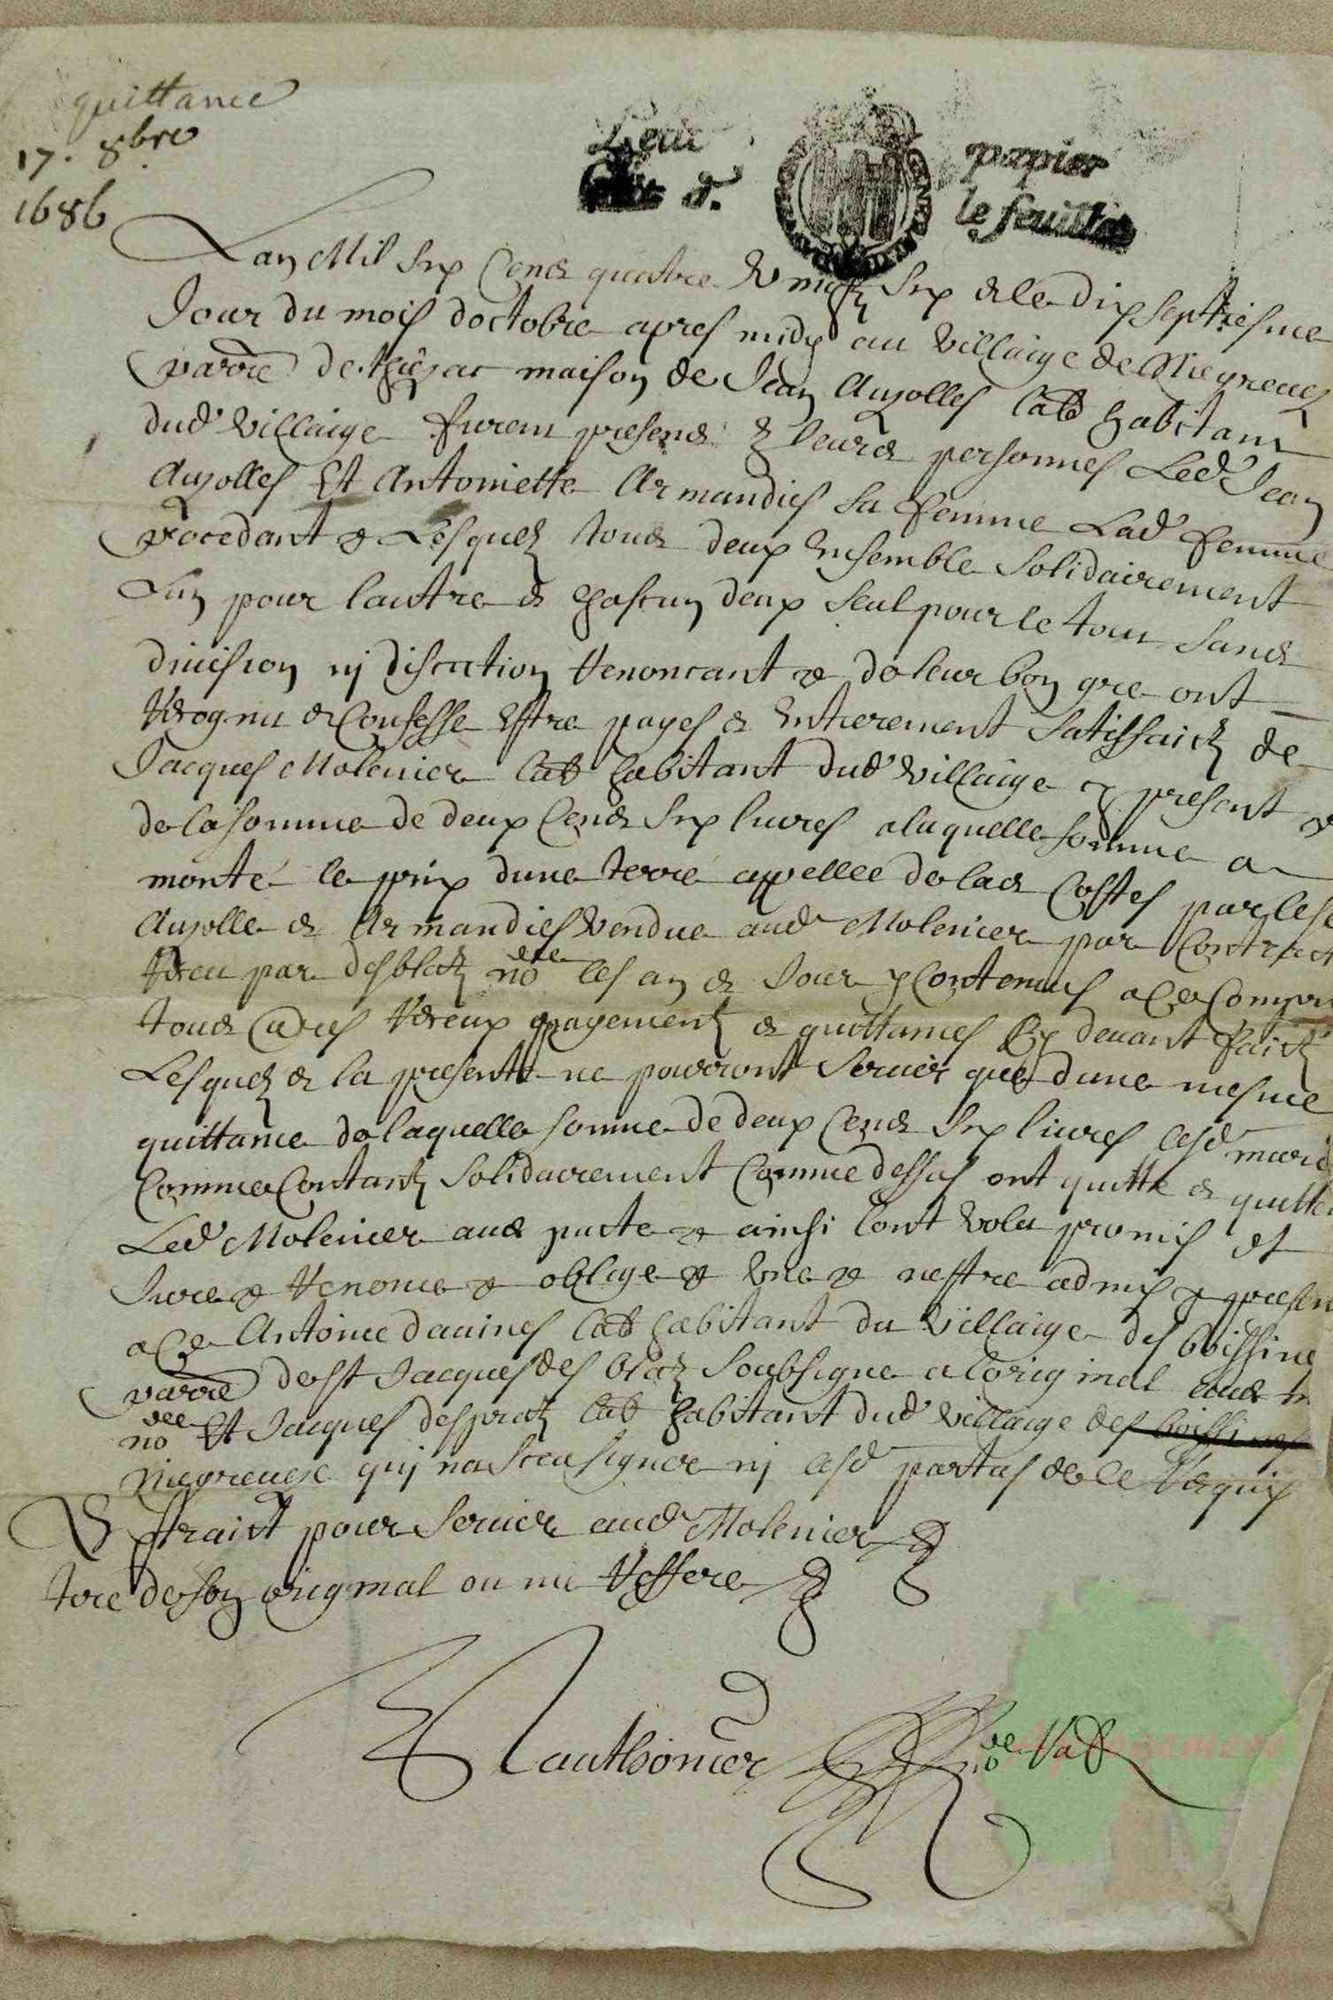 quittance
17. 8bre
1686
Petit papier
d. le feuillet
Lan Mil six Cens quatre vingtz six & le dix septiesme
Jour du mois doctobre apres midy au Villaige de Niegreuez
parre de thiezac maison de Jean Aujolles lab habitant
dud Villaige furent presens & leurs personnes Led Jean
Aujolles Et Antoinette Armandies sa femme Lad femme
procedant & Lesquelz tous deux Ensemble Solidairement
Lun pour lautre & chascun deux seul pour le tout sans
division ny discution Renoncant & de leur bon gre ont
Recognu & Confesse Estre payes & Entierement Satisfaictz de
Jacques Molenier lab habitant dud Villaige present &
de la somme de deux Cens six livres a laquelle somme a
monté le prix dune terre appellee de las Costes par lesd
Aujolle & Armandies vendue aud Molenier par Contract
Receu par desblatz nore les an & Jour y Contenus a Ce Compris
tous autres Receux payementz & quittances Cy devant faictz
Lesquelz & la presente ne pourront servir que dune mesme
quittance de laquelle somme de deux Cens six livres lesd maries
Comme Contantz Solidairement Comme dessus ont quitte & quittent
Led Molenier aud pacte & ainsi lont volu promis et
Jure & Renonce & oblige & & nestre admis & presens
a Ce Antoine dauines lab habitant du Villaige des boissines
parre de St Jacques des blatz Soubsigne a loriginal avec
nore Et Jacques despratz lab habitant dud Villaige des
niegreueze quy na sceu signer ny lesd parties de ce Requis
Extraict pour servir aud Molenier
tire de son original ou me Reffere
Lauthonier nore Ral
Aplegemere